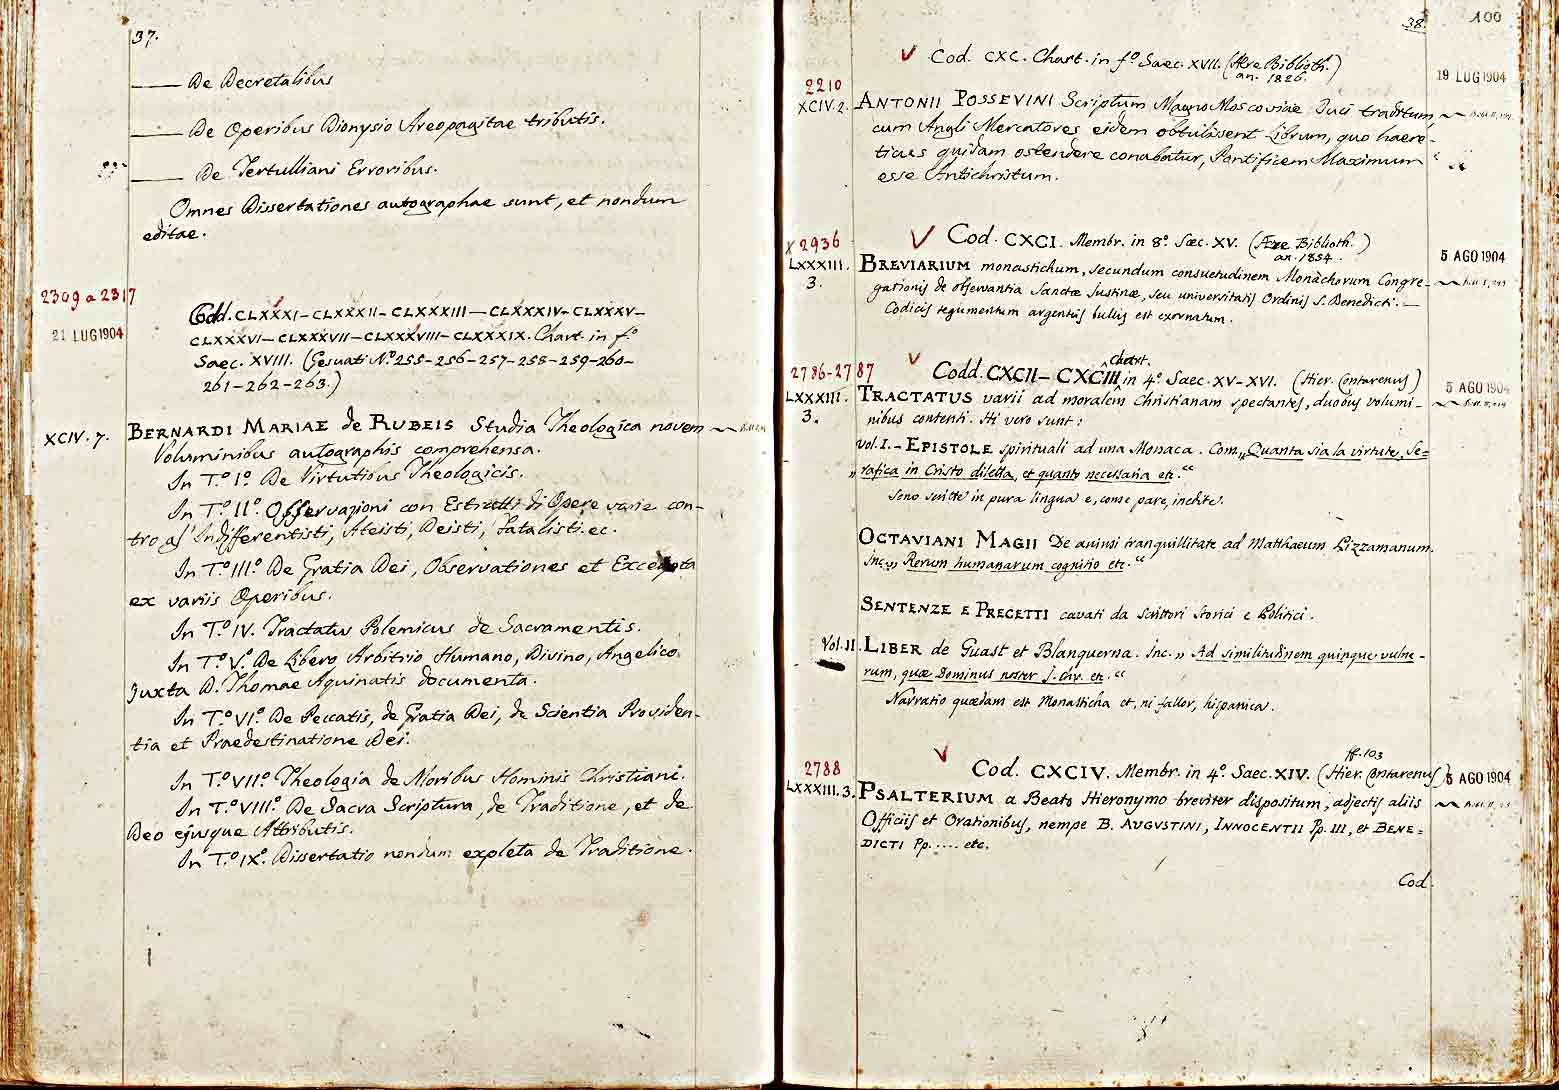 37.
—— De Decretalibus
—— De Operibus Dionysio Areopagitae tributis.
—— De Tertulliani Erroribus.
Omnes Dissertationes autographae sunt, et nondum
editae.
2309 a 2317
21 LUG 1904
Codd. CLXXXI – CLXXXII – CLXXXIII – CLXXXIV – CLXXXV –
CLXXXVI – CLXXXVII – CLXXXVIII – CLXXXIX. Chart. in fº
Saec. XVIII. (Gesuati Nº 255 – 256 – 257 – 258 – 259 – 260 –
261 – 262 – 263.)
XCIV. 7. BERNARDI MARIAE de RUBEIS Studia Theologica novem
Voluminibus autographis comprehensa.
In T.º Iº. De Virtutibus Theologicis.
In T.º IIº. Osservazioni con Estratti di Opere varie con-
tro gl' Indifferentisti, Ateisti, Deisti, Fatalisti. ec.
In T.º IIIº. De Gratia Dei, Observationes et Excerpta
ex variis Operibus.
In T.º IV. Tractatus Polemicus de Sacramentis.
In T.º Vº. De Libero Arbitrio Humano, Divino, Angelico.
juxta D. Thomae Aquinatis documenta.
In T.º VIº. De Peccatis, de Gratia Dei, de Scientia Providen-
tia et Praedestinatione Dei.
In T.º VIIº. Theologia de Moribus Hominis Christiani.
In T.º VIIIº. De Sacra Scriptura, de Traditione, et de
Deo ejusque Attributis.
In T.º IXº. Dissertatio nondum expleta de Traditione.
38.
100
Cod. CXC. Chart. in fº Saec. XVII. (Aere Biblioth.)
an. 1826.
19 LUG 1904
2210
XCIV. 2. ANTONII POSSEVINI Scriptum Magno Moscoviae Duci traditum
cum Angli Mercatores eidem obtulissent Librum, quo haere-
ticus quidam ostendere conabatur, Pontificem Maximum
esse Antichristum.
x 2936
Cod. CXCI. Membr. in 8º. Sæc. XV. (Ære Biblioth.)
an. 1854.
5 AGO 1904
LXXXIII.
3.
BREVIARIUM monasticum, secundum consuetudinem Monachorum Congre-
gationis de observantia Sanctæ Justinæ, seu universitatis Ordinis S. Benedicti. —
Codicis tegumentum argenteis bullis est exornatum.
2786-2787
Codd. CXCII – CXCIII Chart. in 4º. Saec. XV – XVI. (Hier. Contarenus)
5 AGO 1904
LXXXIII.
3.
TRACTATUS varii ad moralem Christianam spectantes, duobus volumi-
nibus contenti. Hi vero sunt:
Vol. I. – EPISTOLE spirituali ad una Monaca. Com. „Quanta sia la virtute, Se-
„rafica in Cristo diletta, et quanto necessaria etc."
Sono scritte in pura lingua e, come pare, inedite.
OCTAVIANI MAGII De animi tranquillitate ad Matthaeum Lizzamanum.
Inc. „ Rerum humanarum cognitio etc."
SENTENZE E PRECETTI cavati da Scrittori Storici e Politici.
Vol. II. LIBER de Guast et Blanquerna. Inc. „ Ad similitudinem quinque vulne-
rum, quæ Dominus noster J. Chr. etc."
Narratio quædam est Monasticha et, ni fallor, hispanica.
ff. 103
2788
Cod. CXCIV. Membr. in 4º. Saec. XIV. (Hier. Contarenus)
5 AGO 1904
LXXXIII. 3. PSALTERIUM a Beato Hieronymo breviter dispositum, adjectis aliis
Officiis et Orationibus, nempe B. AUGUSTINI, INNOCENTII Pp. III, et BENE=
DICTI Pp. .... etc.
Cod.